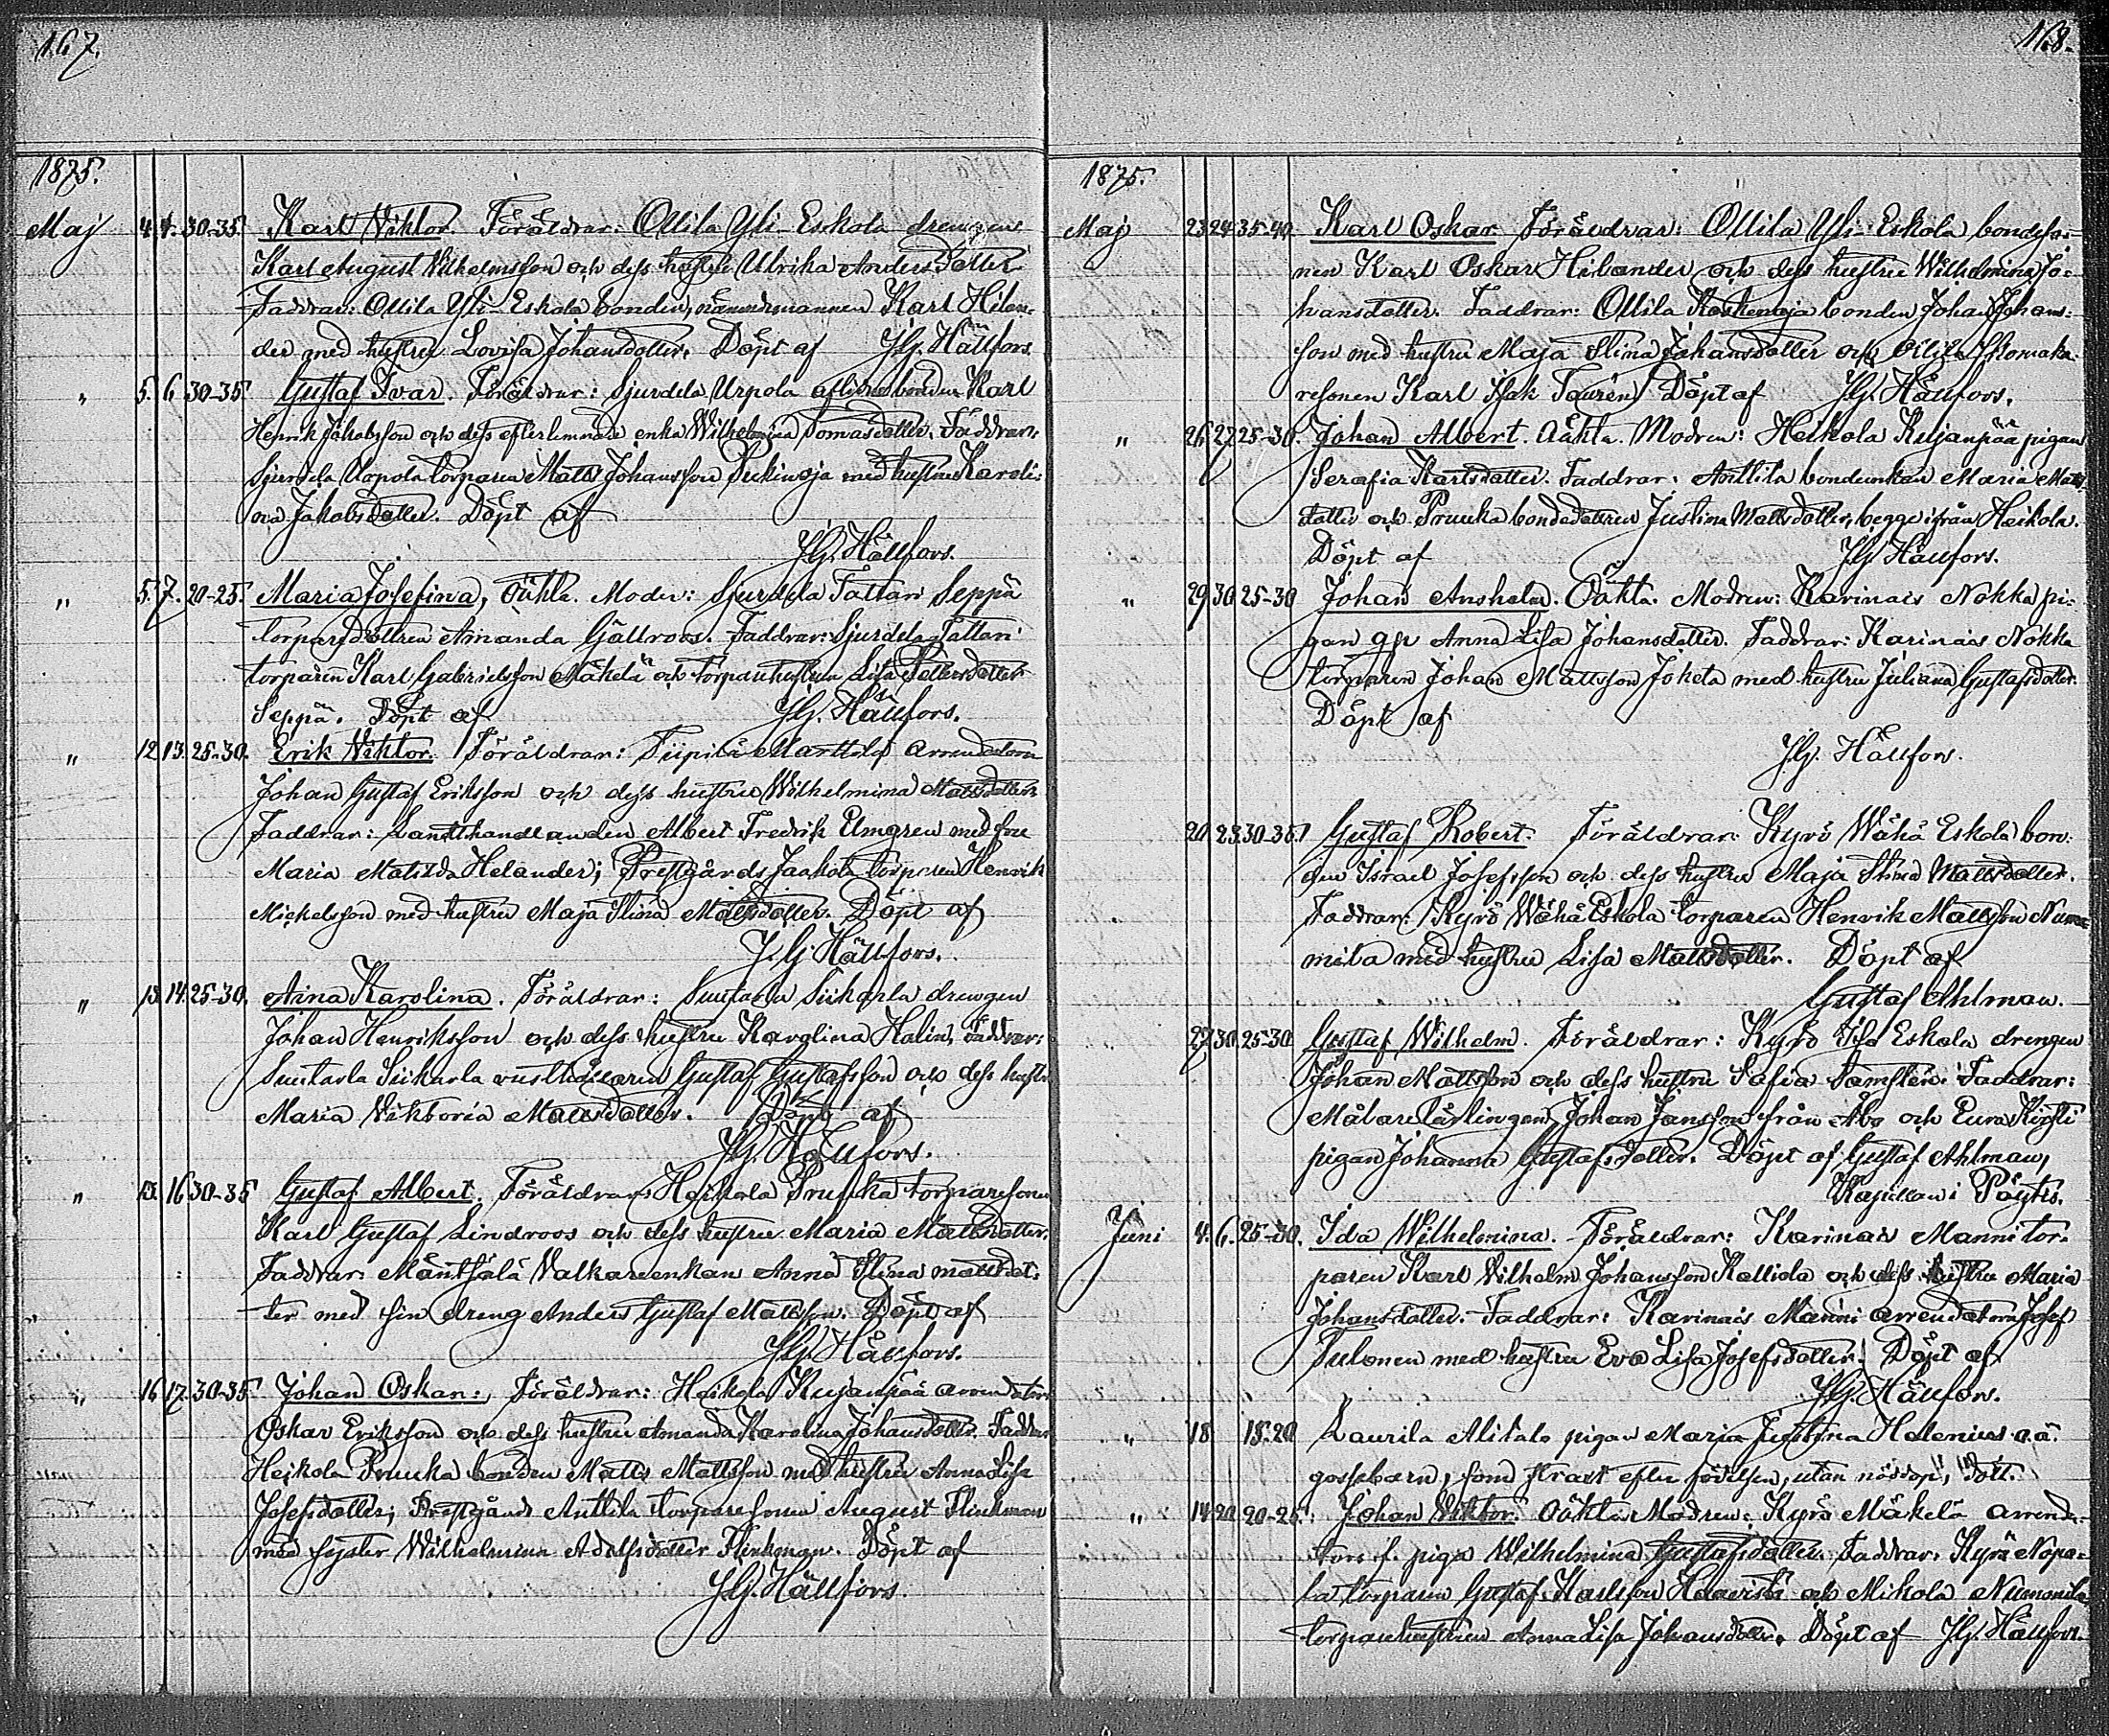 167.
1875.
Maj 4. 4. 30-35. Karl Viktor. Föräldrar: Ollila Yli-Eskola drengen
Karl August Wilhelmsson och dess hustru Ulrika Andersdotter
Faddrar: Ollila Yli-Eskola bonden, nämndemannen Karl Hilan-
der med hustru Lovisa Johansdotter. Döpt af J.G. Hällfors.
" 5. 6. 30-35. Gustaf Ivar. Föräldrar: Sjurdela Urpola aflidne bonden Karl
Henrik Jakobsson och dess efterlemnade enka Wilhelmina Tomasdotter. Faddrar:
Sjurdela Urpola torparen Matts Johansson Peckinoja med hustru Karoli-
na Jakobsdotter. Döpt af
J.G. Hällfors.
" 5. 7. 20-25. Maria Josefina, Oäkta. Moder: Sjurdela Tattari Seppä
torparedottren Amanda Gällroos. Faddrar: Sjurdela Tattari
torparen Karl Gabrielsson Mäkelä och torparehustrun Lisa
Seppä. Döpt af J.G. Hällfors.
" 12. 13. 25-30. Erik Viktor. Föräldrar: Marttila arrendatorn
Johan Gustaf Eriksson och dess hustru Wilhelmina Mattsdotter
Faddrar: Landthandlanden Albert Fredrik Elmgren med fru
Maria Matilda Helander; Prestgårds Jaakola torparen Henrik
Mickelsson med hustru Maja Stina Mattsdotter. Döpt af
J.G. Hällfors.
" 13. 14. 25-30. Aina Karolina. Föräldrar: Suutarla Siikarla drengen
Johan Henriksson och dess hustru Karolina Halin, Faddrar:
Suutarla Siikarla rusthållaren Gustaf Gustafsson och dess hustru
Maria Viktoria Mattsdotter. Döpt af
J.G. Hällfors.
" 13. 16. 30-35 Gustaf Albert. Föräldrar: Heikola Pruuka torparesonen
Karl Gustaf Lindroos och dess hustru Maria Mattsdotter.
Faddrar: Mäntsälä Valkareenkan Anna Stina Mattsdot-
ter med sin dreng Anders Gustaf Mattsson. Döpt af
J.G. Hällfors.
" 16 17. 30-35 Johan Oskar. Föräldrar: Heikola Kujanpää arrendatorn
Oskar Eriksson och dess hustru Amanda Karolina Johansdotter. Faddrar
Heikola Pruuka bonden Matts Mattsson med hustru Anna Lisa
Josefsdotter; Prestgårds Anttila torparesonen August Flinkman
med syster Wilhelmina Adolfsdotter Flinkman. Döpt af
J.G. Hällfors.
168.
1875.
Maj 23 24 35-40 Karl Oskar Föräldrar: Ollila Yli-Eskola bondeso-
nen Karl Oskar Hilander och dess hustru Wilhelmina Jo-
hansdotter. Faddrar: Ollila Koskenoja bonden Johan Johans-
son med hustru Maja Stina Johansdotter och Ollila Skomaka-
resonen Karl Isak Taurén. Döpt af J.G. Hällfors.
" 26 27 25-30. Johan Albert. Oäkta. Modren: Heikola Kujanpää pigan
Serafia Karlsdotter. Faddrar: Anttila bondeenkan Maria Matts-
dotter och Pruuka bondedottren Justina Mattsdotter, begge ifrån Heikola.
Döpt af J.G. Hällfors.
" 29 30 25-30 Johan Anshelm. Oäkta. Modren: Karinais Nokka pi-
gan Anna Lisa Johansdotter. Faddrar: Karinais Nokka
torparen Johan Mattsson Jokela med hustru Juliana Gustafsdotter.
Döpt af
J.G. Hällfors.
20 23 30-35. Gustaf Robert. Föräldrar: Kyrö Wähä Eskola bon-
den Israel Josefsson och dess hustru Maja Stina Mattsdotter.
Faddrar: Kyrö Wähä Eskola torparen Henrik Mattsson Numme-
mila med hustru Lisa Mattsdotter. Döpt af
Gustaf Ahlman.
27 30 25-30 Gustaf Wilhelm. Föräldrar: Kyrö Iso Eskola drengen
Johan Mattsson och dess hustru Safia Samstén. Faddrar:
Målarelärlingen Johan Jansson från Åbo och Eura
pigan Johanna Gustafsdotter. Döpt af Gustaf Ahlman,
Kapellan i Pöytis.
Juni 4. 6. 25-30. Ida Wilhelmina. Föräldrar: Karinais Manni tor-
paren Karl Vilhelm Johansson Kalliola och dess hustru Maria
Johansdotter. Faddrar: Karinais Manni arrendatorn Josef
Tulonen med hustru Eva Lisa Josefsdotter. Döpt af
J.G. Hällfors.
" 18 15-20 Laurila Alitalo pigan Maria Justina Helenius o.ä.
gossebarn, som strax efter födelsen, utan nöddop, dött.
" 14 20. 20-25. Johan Viktor. Oäkta Modren: Kyrö Mäkelä arrenda-
tors f. piga Wilhelmina Gustafsdotter. Faddrar: Kyrö Nopa-
la torparen Gustaf Karlsson Haavisto och Mikola Nummila
torparehustrun Anna Lisa Johansdotter. Döpt af J.G. Hällfors.